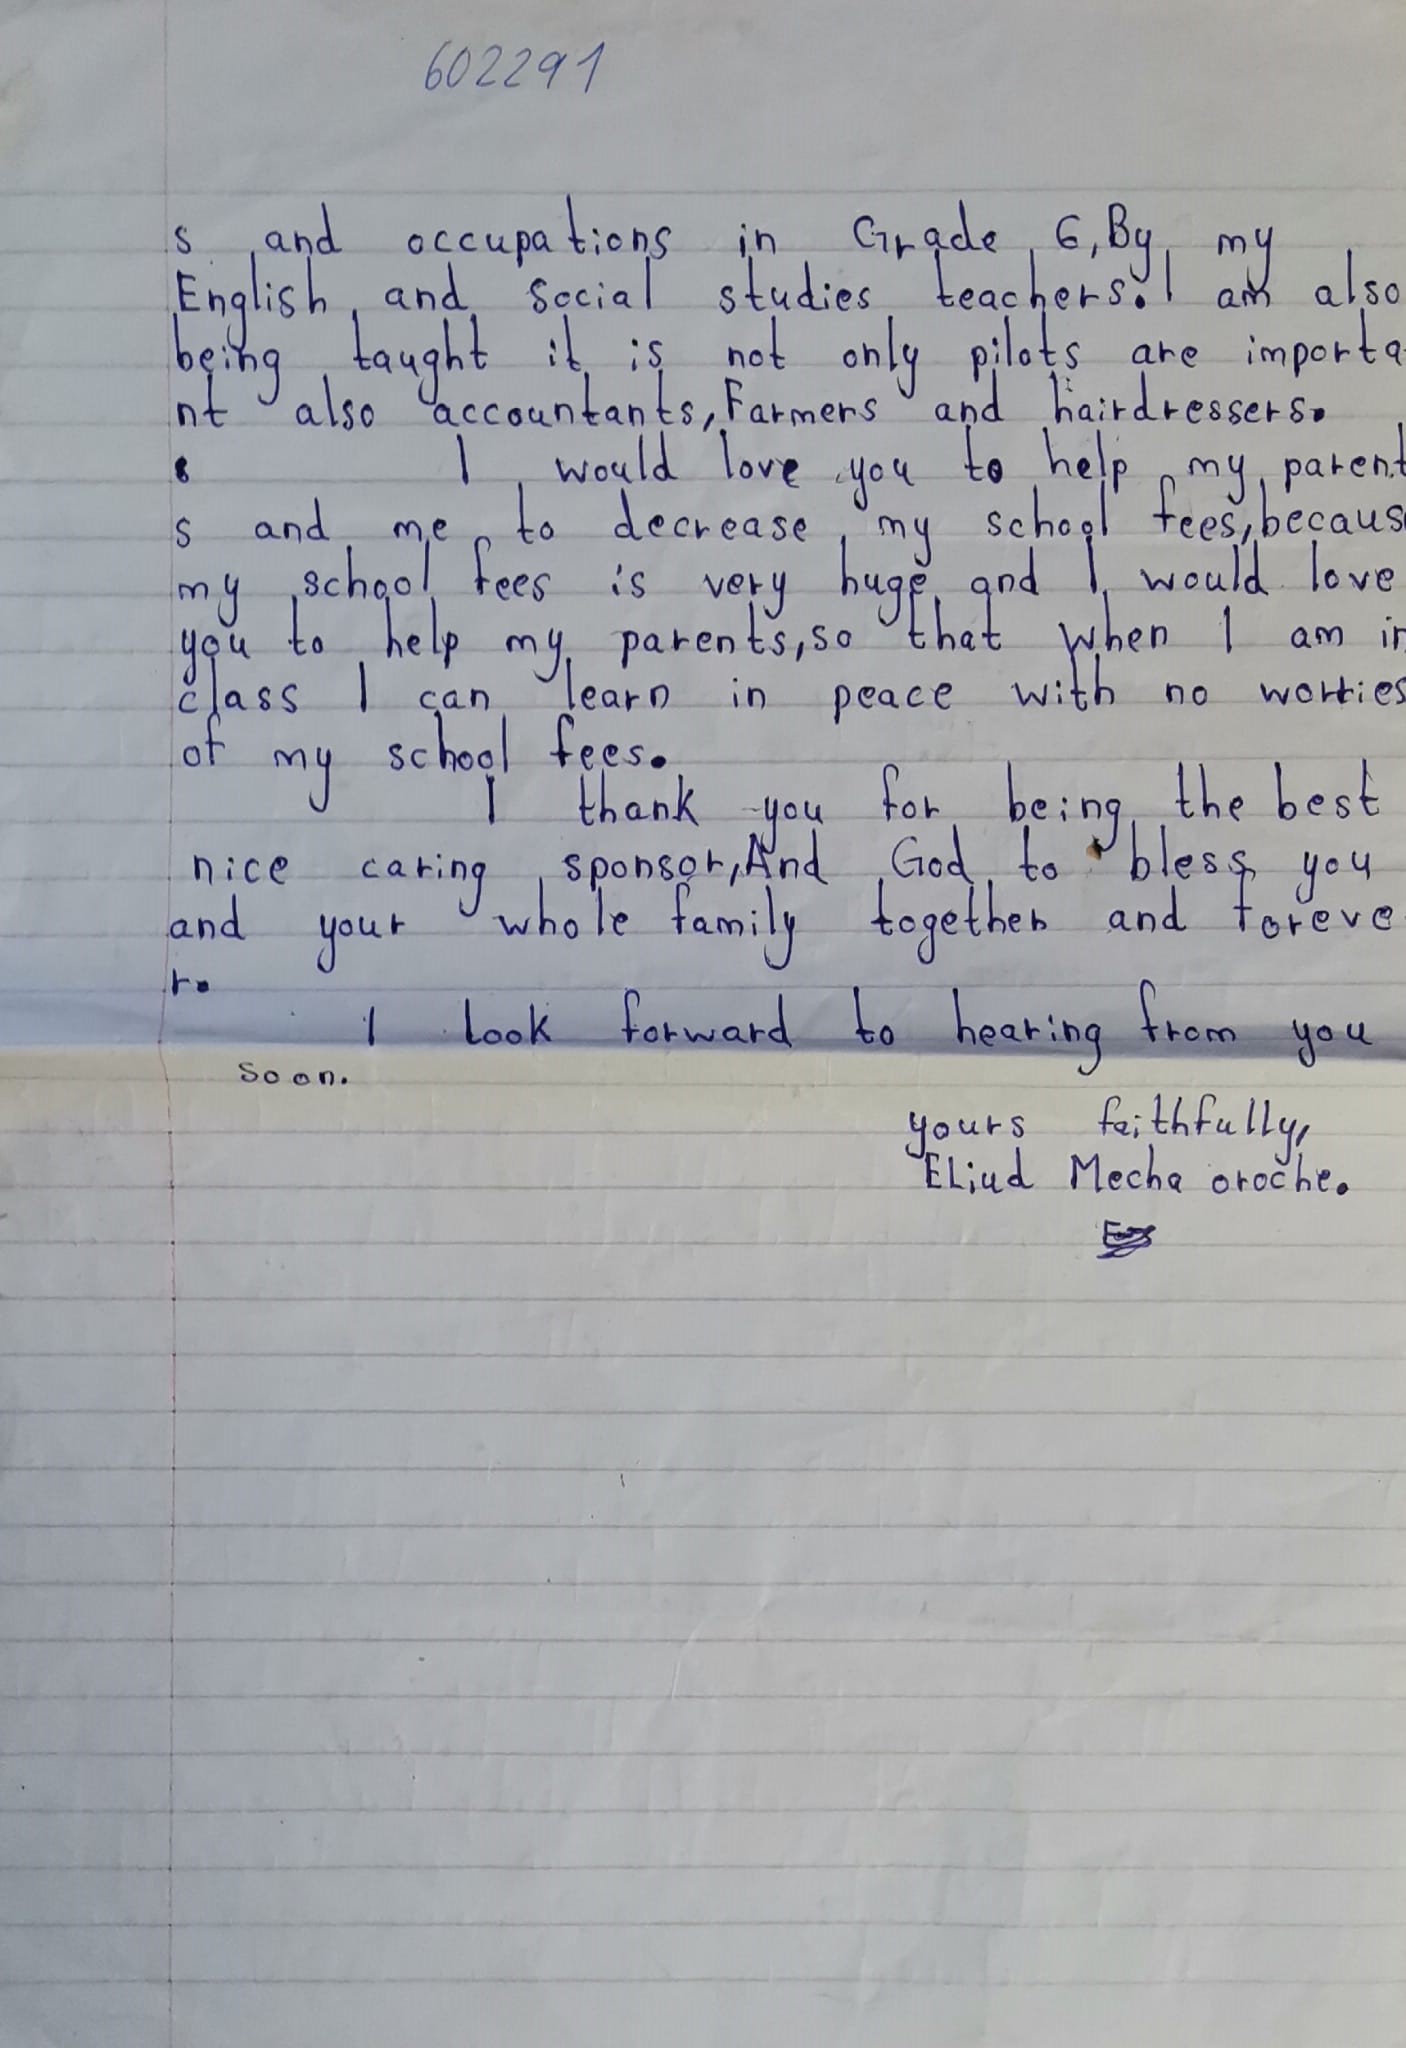 602291
s and occupations in Grade 6,By my
English and social studies teachers.I am also
being taught it is not only pilots are importa
nt also accountants,Farmers and hairdressers.
I would love you to help my parent
s and me to decrease my school fees,becaus
my school fees is very huge and I would love
you to help my parents,so that when I am in
class I can learn in peace with no worries
of my school fees.
I thank you for being the best
nice caring sponsor,And God to bless you
and your whole family together and foreve
r.
I look forward to hearing from you
soon.
yours faithfully,
Eliud Mecha oroche.